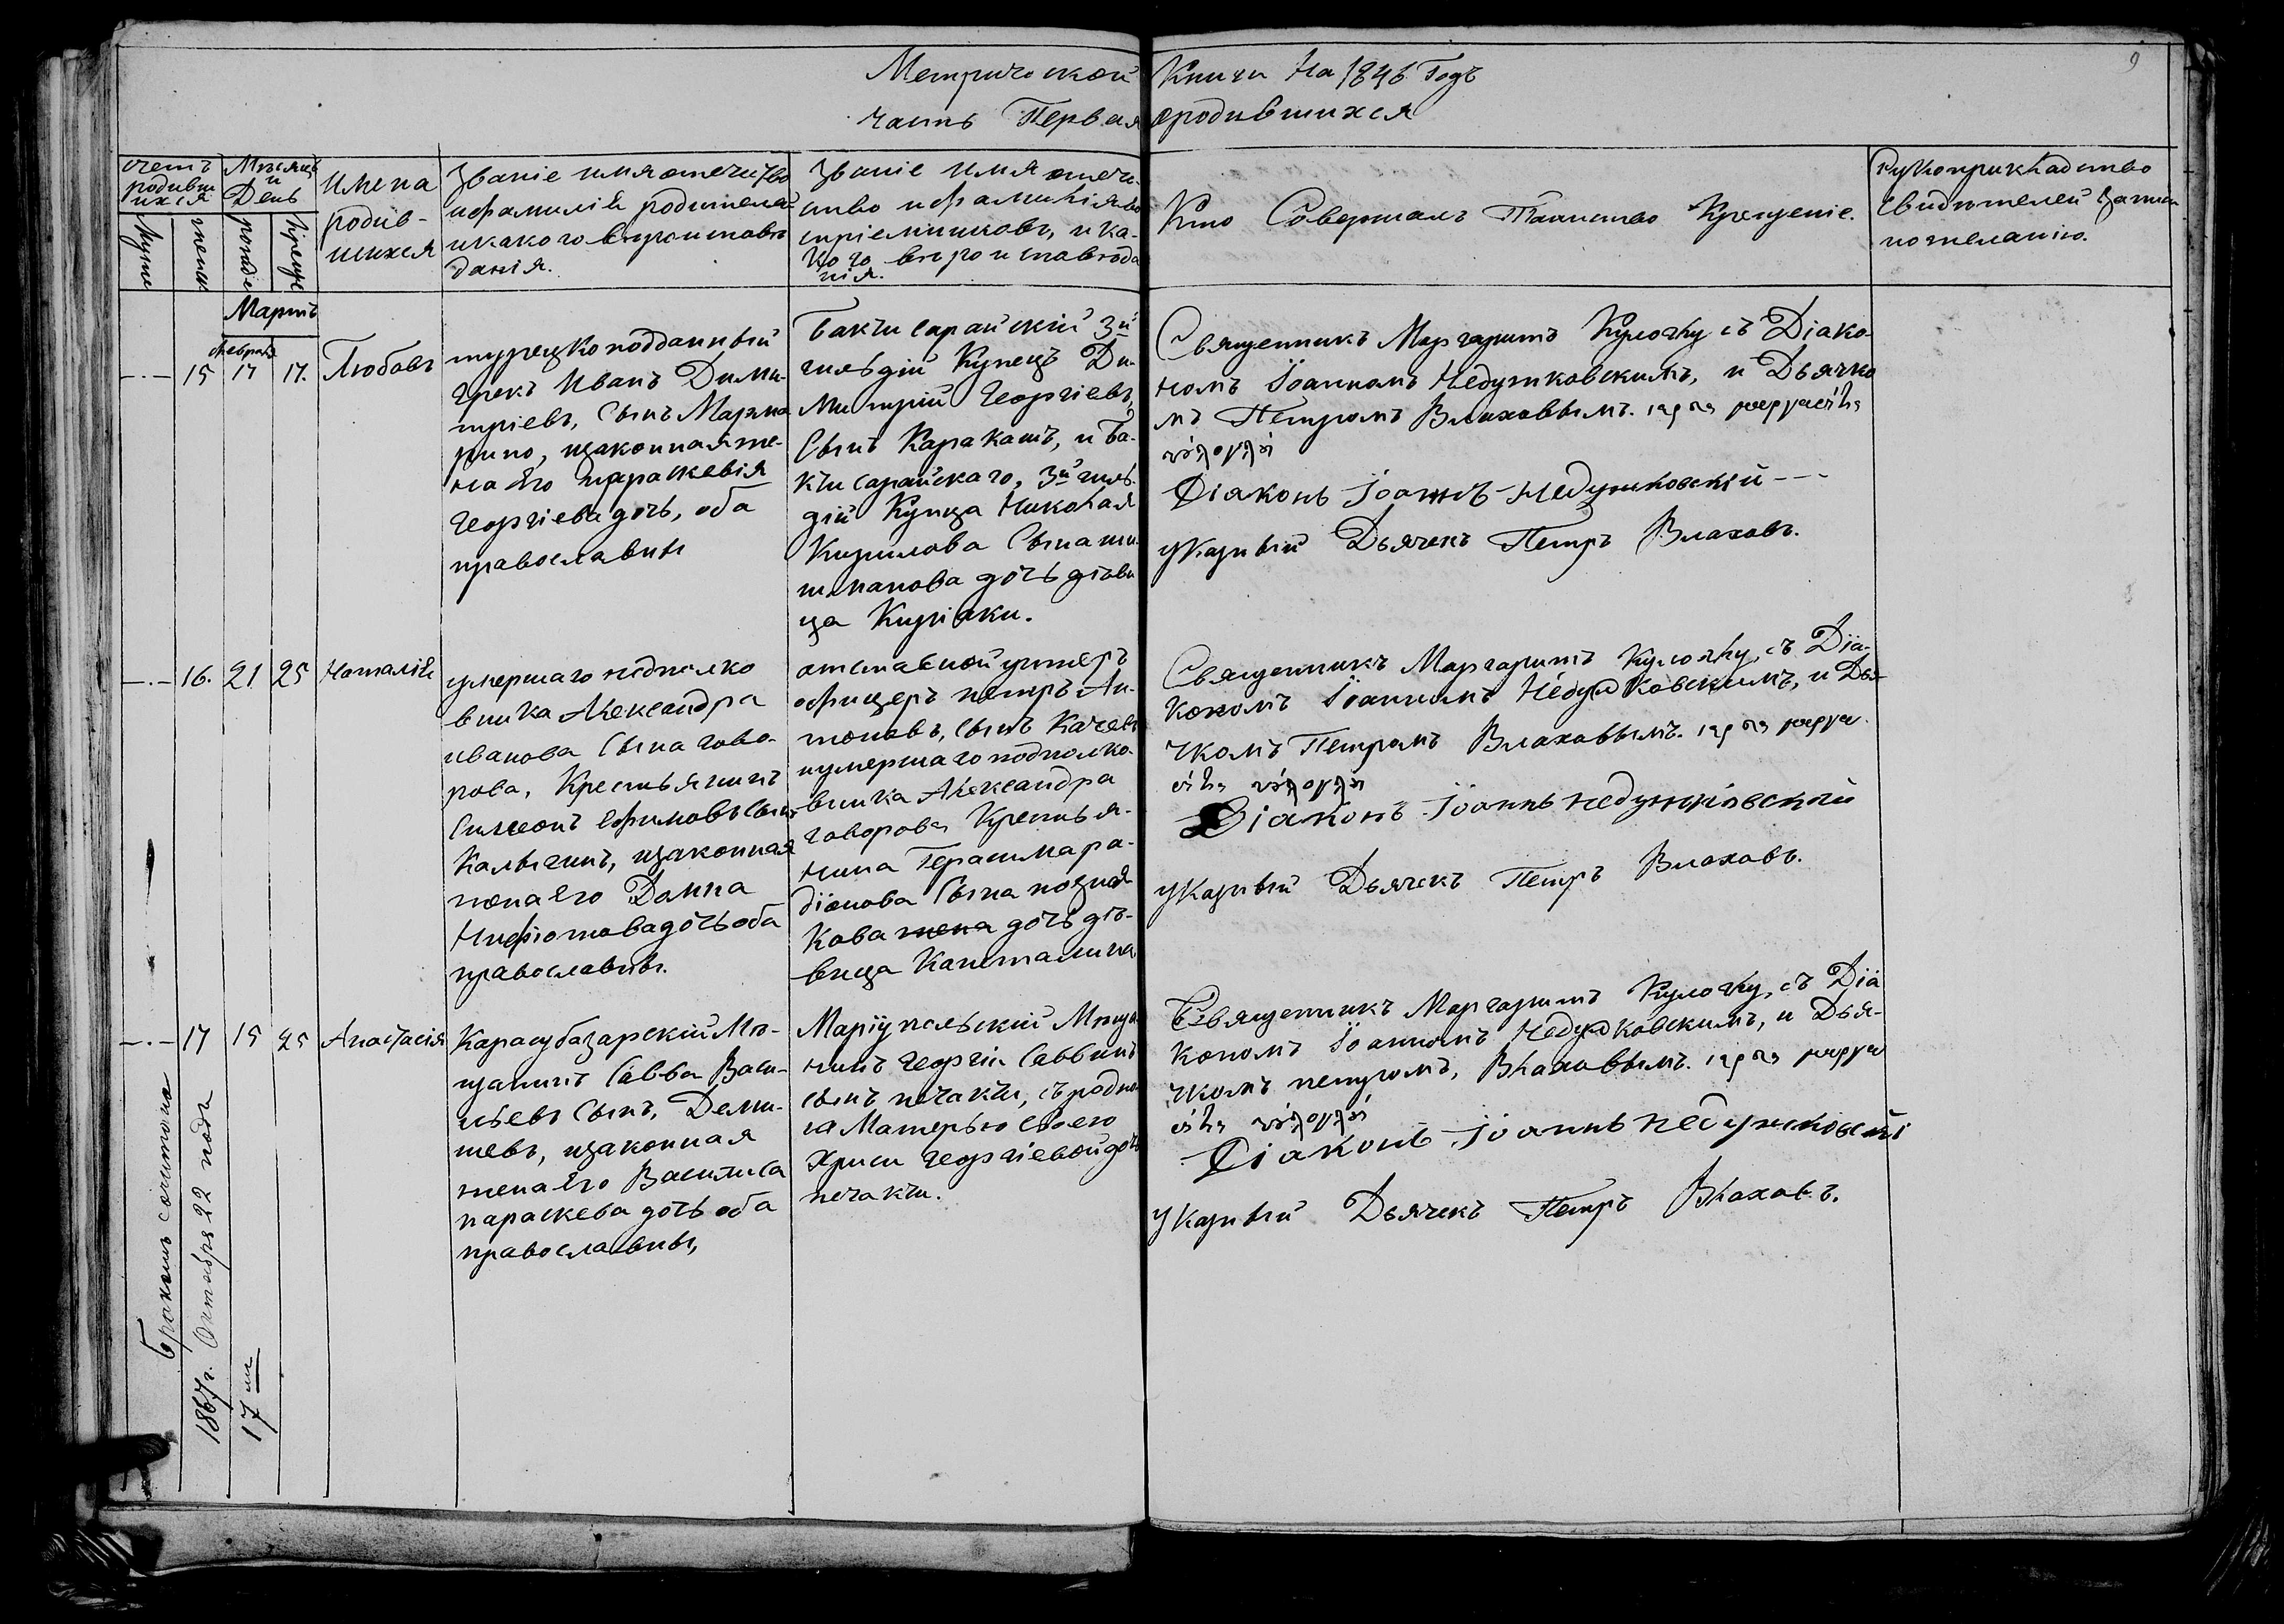 Метрической Книги На 1846 Годъ
часть Первая о родившихся
9
счетъ родивши ихся
Мужск
женск
Мѣсяцъ и День
рожден
крещен
Имена
родив-
шихся
Званіе имя отечество
и фамилія родителей
и какого вѣроисповѣ
данія.
Званіе имя отече-
ство и фамилія во
спріемниковъ, и ка-
кого вѣроисповѣда
нія.
Кто Совершалъ Таинство Крещеніе.
Рукоприкладство
свидѣтелей записи
по желанію.
Мартъ
февраля
—.— 15 17 17. Любовь
турецко подданный
грекъ Иванъ Дими-
тріевъ, Сынъ
изаконная же-
на Его Параскевія
Георгіева дочь, оба
православны
Бакчисарайскій 3й
гильдіи Купецъ Ди-
митрій Георгіевъ,
Сынъ Каракашъ, и Ба-
кчисарайскаго, 3й гиль
діи Купца Николая
Кирилова Сына ши
шманова дочь дѣви
ца Киріаки.
Священникъ Маргаритъ Кумочку съ Діако-
номъ Іоанномъ Недужковскимъ, и Дьячко
мъ Петромъ Влаховымъ.
Діаконъ Іоаннъ Недужковскій - - -
указный Дьячекъ Петръ Влаховъ.
—.— 16. 21 25 Наталія
умершаго подполко
вника Александра
иванова Сына гово-
рова, Крестьянинъ
Симеонъ Ефимовъ Сынъ
Калыгинъ, изаконная
жена Его Домна
дочь оба
православны.
отставной унтеръ
офицеръ петръ Ан-
тоновъ, сынъ Качевъ
и умершаго подполко-
вника Александра
говорова, Крестья-
нина Герасима ра-
діонова Сына позня
кова жена дочь дѣ-
вица Капеталина
Священникъ Маргаритъ Кумочку, съ Діа-
кономъ Іоанномъ Недужковскимъ, и Дья-
чкомъ Петромъ Влаховымъ.
Діаконъ Іоаннъ недужковский
указный Дьячекъ Петръ Влаховъ.
—.— 17 15 25 Анастасія
Карасубазарскій Мѣ-
щанинъ Савва Васи-
льевъ Сынъ, Деми-
шевъ, изаконная
жена Его Василиса
параскева дочь оба
православны,
Маріупольскій Мѣща
нинъ Георгій Саввинъ
сынъ почакчи, съ родно
ю Матерью своею
Хриси Георгіевой дочь
почакчи.
Священникъ Маргаритъ Кумочку, съ Діа
кономъ Іоанномъ Недужковскимъ, и Дья-
чкомъ петромъ, Влаховымъ.
Діаконъ Іоаннъ недужковскі
указный Дьячекъ Петръ Влаховъ.
бракомъ сочитана
1867 г. Октября 22 подъ
17 м